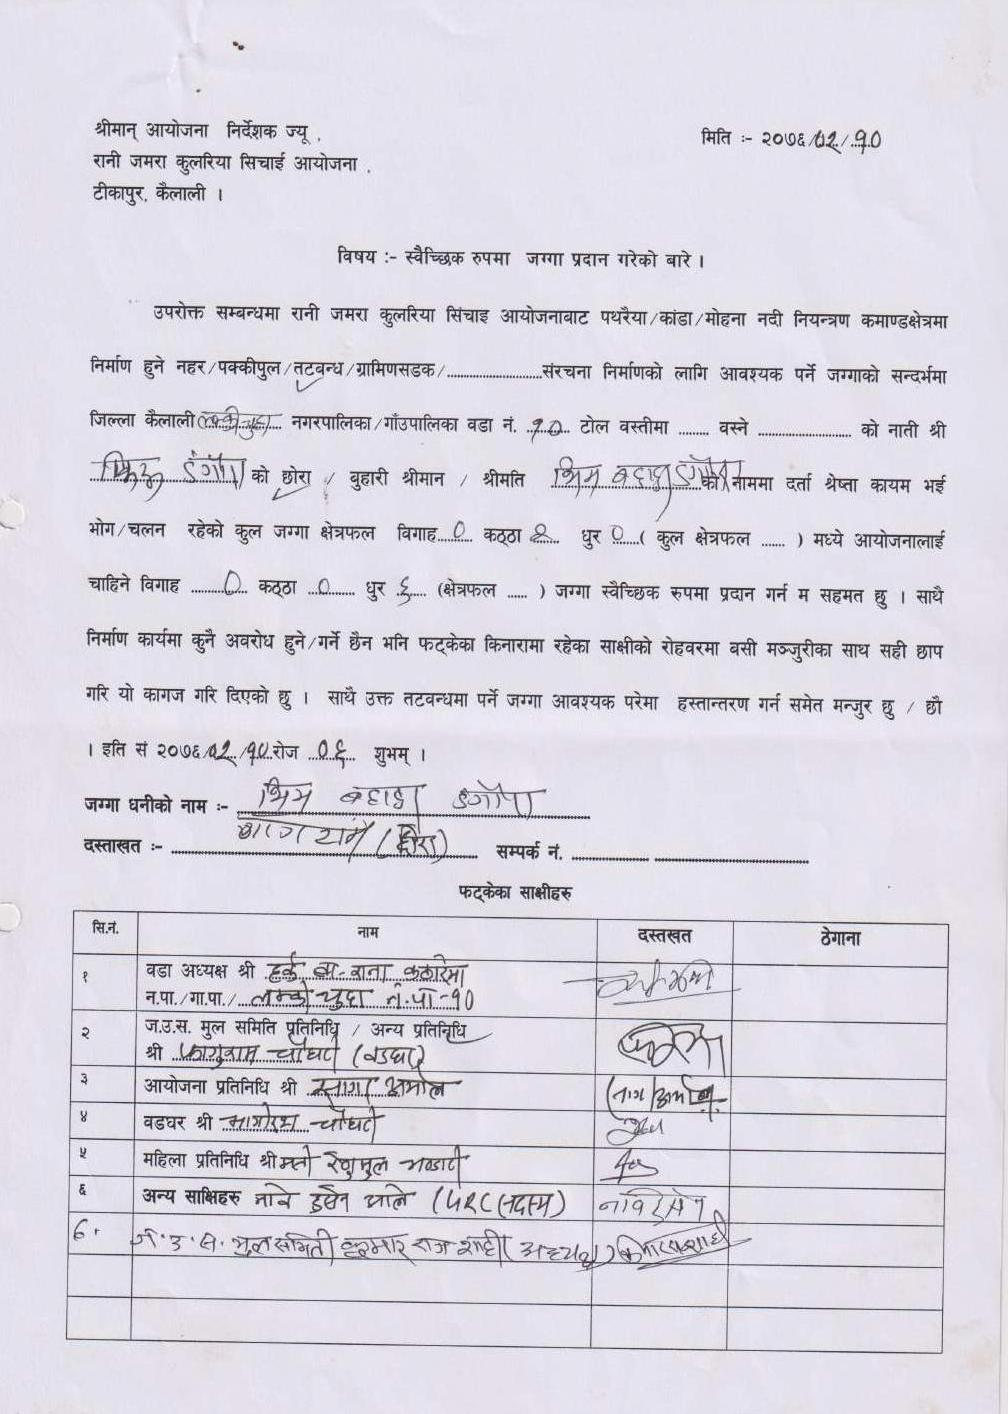 श्रीमान् आयोजना निर्देशक ज्यू ,
मिति :- २०७६/०२/१०
रानी जमरा कुलरिया सिचाई आयोजना ,
टीकापुर, कैलाली ।
विषय :- स्वैच्छिक रुपमा जग्गा प्रदान गरेको बारे ।
उपरोक्त सम्बन्धमा रानी जमरा कुलरिया सिंचाइ आयोजनाबाट पथरैया/कांडा/मोहना नदी नियन्त्रण कमाण्डक्षेत्रमा
निर्माण हुने नहर/पक्कीपुल/तटबन्ध/ग्रामिणसडक/..........................संरचना निर्माणको लागि आवश्यक पर्ने जग्गाको सन्दर्भमा
जिल्ला कैलाली लम्कीचुहा नगरपालिका/गाँउपालिका वडा नं. १० टोल वस्तीमा ........ वस्ने .......................... को नाती श्री
डंगौरा को छोरा / बुहारी श्रीमान / श्रीमति भिम बहादुर डंगौरा को नाममा दर्ता श्रेष्ता कायम भई
भोग/चलन रहेको कुल जग्गा क्षेत्रफल विगाह ० कठ्ठा २ धुर ० ( कुल क्षेत्रफल ...... ) मध्ये आयोजनालाई
चाहिने विगाह ० कठ्ठा ० धुर ६ (क्षेत्रफल ...... ) जग्गा स्वैच्छिक रुपमा प्रदान गर्न म सहमत छु । साथै
निर्माण कार्यमा कुनै अवरोध हुने/गर्ने छैन भनि फट्केका किनारामा रहेका साक्षीको रोहवरमा बसी मञ्जुरीका साथ सही छाप
गरि यो कागज गरि दिएको छु । साथै उक्त तटवन्धमा पर्ने जग्गा आवश्यक परेमा हस्तान्तरण गर्न समेत मन्जुर छु / छौ
। इति सं २०७६/०२/१० रोज ०६ शुभम् ।
जग्गा धनीको नाम :- भिम बहादुर डंगौरा
दस्ताखत :- (छोरा) सम्पर्क नं. ........................................
फट्केका साक्षीहरु
सि.नं. नाम दस्तखत ठेगाना
१ वडा अध्यक्ष श्री हर्क ब. राना
न.पा./गा.पा./ लम्की चुहा न.पा-१०
२ ज.उ.स. मुल समिति प्रतिनिधि / अन्य प्रतिनिधि
श्री फागुराम चौधरी (वडघर)
३ आयोजना प्रतिनिधि श्री
४ वडघर श्री चौधरी
५ महिला प्रतिनिधि श्रीमती
६ अन्य साक्षिहरु (सदस्य)
ज.उ.स. मुल समिती कुमार राज शाही (अध्यक्ष)